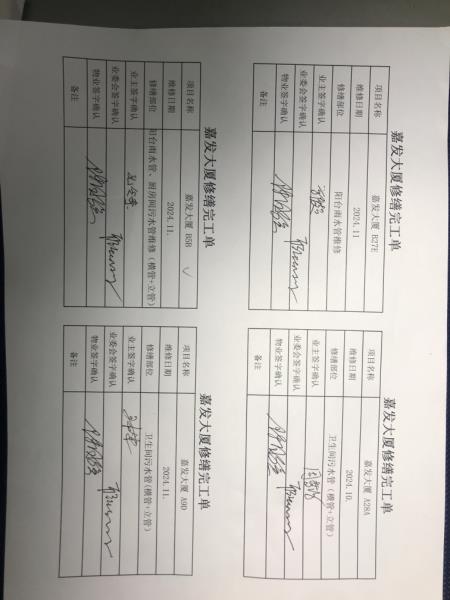 嘉发大厦修缮完工单
项目名称 嘉发大厦 B27E
维修日期 2024.11
修缮部位 阳台雨水管维修
业主签字确认
业委会签字确认
物业签字确认
备注
嘉发大厦修缮完工单
项目名称 嘉发大厦 A28A
维修日期 2024.10.
修缮部位 卫生间污水管(横管+立管)
业主签字确认
业委会签字确认
物业签字确认
备注
嘉发大厦修缮完工单
项目名称 嘉发大厦 B5B
维修日期 2024.11.
修缮部位 阳台雨水管、厨房间污水管维修(横管+立管)
业主签字确认
业委会签字确认
物业签字确认
备注
嘉发大厦修缮完工单
项目名称 嘉发大厦 A9D
维修日期 2024.11.
修缮部位 卫生间污水管(横管+立管)
业主签字确认
业委会签字确认
物业签字确认
备注